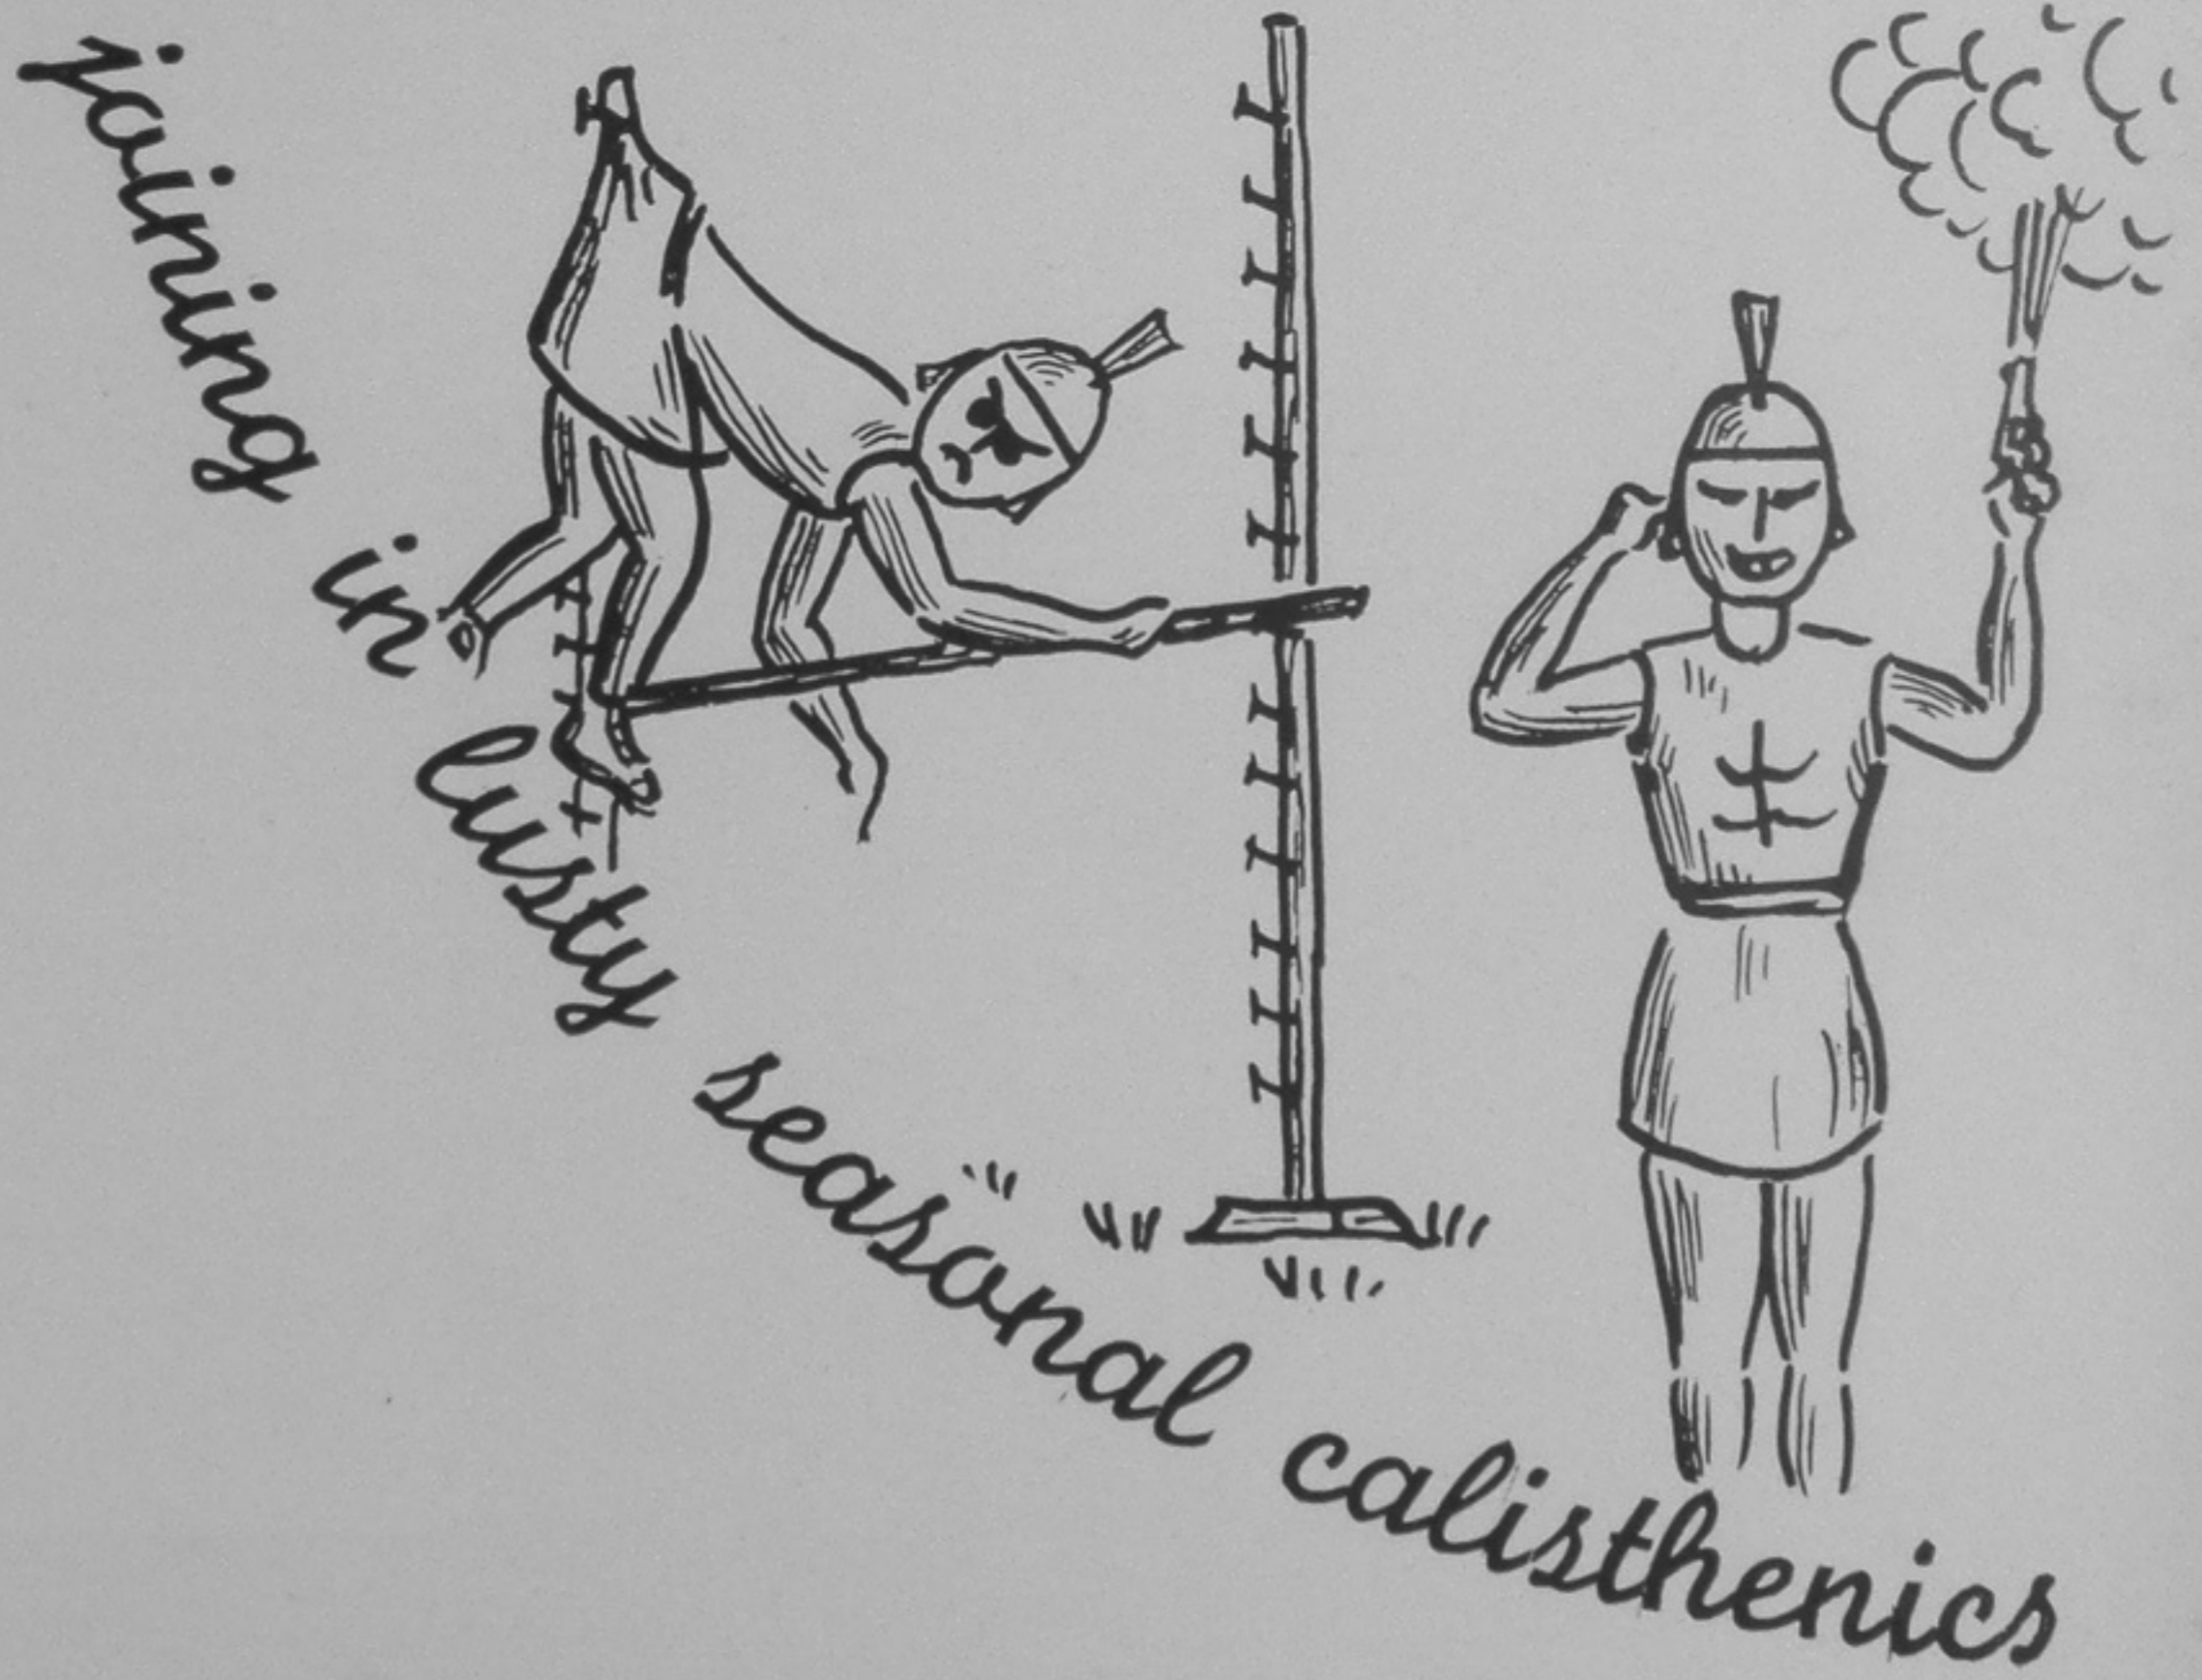 joining in lusty seasonal calisthenics